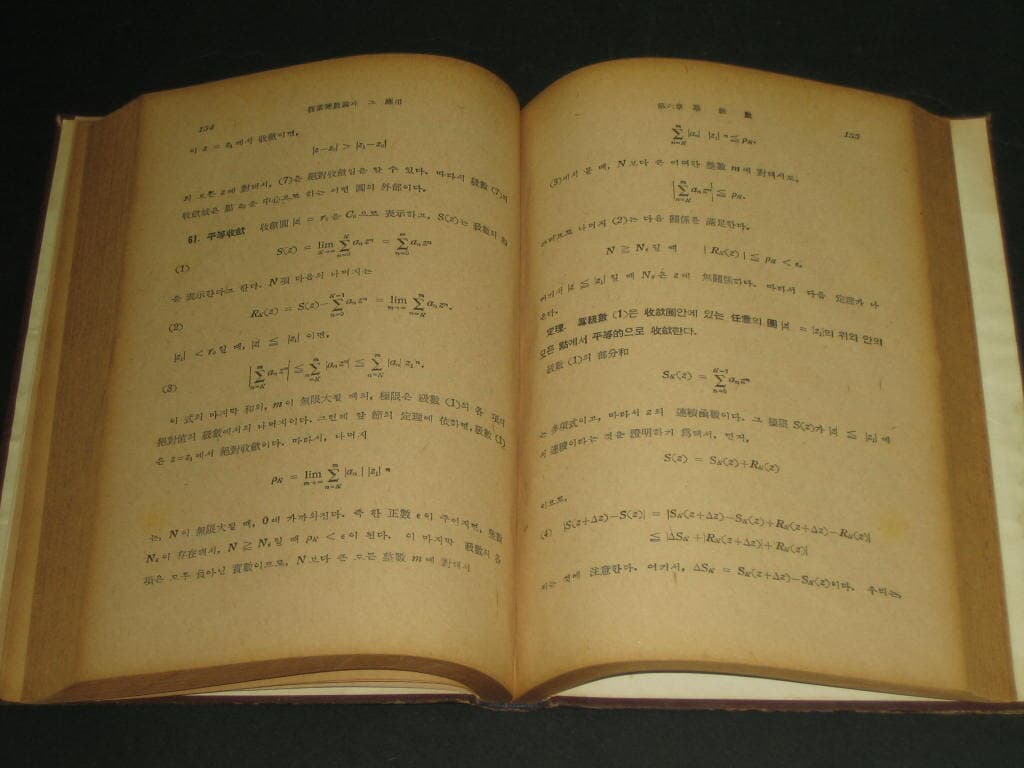 154
複素變數論과 그 應用
이 z = z₁에서 收斂이면,
|z−z₀| > |z₁−z₀|
의 모든 z에 對해서, (7)은 絕對收斂임을 알 수 있다. 따라서 級數 (7)의
收斂域은 點 z₀을 中心으로 하는 어떤 圓의 外部이다.
61. 平等收斂 收斂圓 |z| = r₀을 C₀으로 表示하고, S(z)는 級數의 和
(1) S(z) = lim_{K→∞} ∑_{n=0}^{K} aₙzⁿ = ∑_{n=0}^{∞} aₙzⁿ
을 表示한다고 한다. N項 다음의 나머지는
(2) R_N(z) = S(z)−∑_{n=0}^{N−1} aₙzⁿ = lim_{m→∞} ∑_{n=N}^{m} aₙzⁿ.
|z₁| < r₀일 때, |z| ≦ |z₁| 이면,
(3) |∑_{n=N}^{m} aₙzⁿ| ≦ ∑_{n=N}^{m} |aₙzⁿ| ≦ ∑_{n=N}^{m} |aₙ| |z₁|ⁿ.
이 式의 마지막 和의, m이 無限大될 때의, 極限은 級數 (1)의 各 項의
絕對値의 級數에서의 나머지이다. 그런데 앞 節의 定理에 依하면, 級數 (1)
은 z=z₁에서 絕對收斂이다. 따라서, 나머지
ρ_N = lim_{m→∞} ∑_{n=N}^{m} |aₙ| |z₁|ⁿ
는, N이 無限大될 때, 0에 가까와진다. 즉 한 正數 ε이 주어지면, 整數
N_ε이 存在해서, N ≧ N_ε일 때 ρ_N < ε이 된다. 이 마지막 級數의 各
項은 모두 負아닌 實數이므로, N보다 큰 모든 整數 m에 對해서
第六章 冪 級 數
155
∑_{n=N}^{m} |aₙ| |z₁|ⁿ ≦ ρ_N.
(3)에서 볼 때, N보다 큰 어떠한 整數 m에 對해서도,
|∑_{n=N}^{m} aₙzⁿ| ≦ ρ_N.
그러므로 나머지 (2)는 다음 關係를 滿足한다.
N ≧ N_ε일 때 |R_N(z)| ≦ ρ_N < ε,
여기서 |z| ≦ |z₁|일 때 N_ε은 z에 無關係하다. 따라서 다음 定理가 나
온다.
定理. 冪級數 (1)은 收斂圓안에 있는 任意의 圓 |z| = |z₁|의 위와 안의
모든 點에서 平等的으로 收斂한다.
級數 (1)의 部分和
S_N(z) = ∑_{n=0}^{N−1} aₙzⁿ
는 多項式이고, 따라서 z의 連續函數이다. 그 極限 S(z)가 |z| ≦ |z₁|에
서 連續이라는 것을 證明하기 爲해서, 먼저,
S(z) = S_N(z)+R_N(z)
이므로,
(4) |S(z+Δz)−S(z)| = |S_N(z+Δz)−S_N(z)+R_N(z+Δz)−R_N(z)|
≦ |ΔS_N|+|R_N(z+Δz)|+|R_N(z)|
라는 것에 注意한다. 여기서, ΔS_N = S_N(z+Δz)−S_N(z)이다. 우리는,